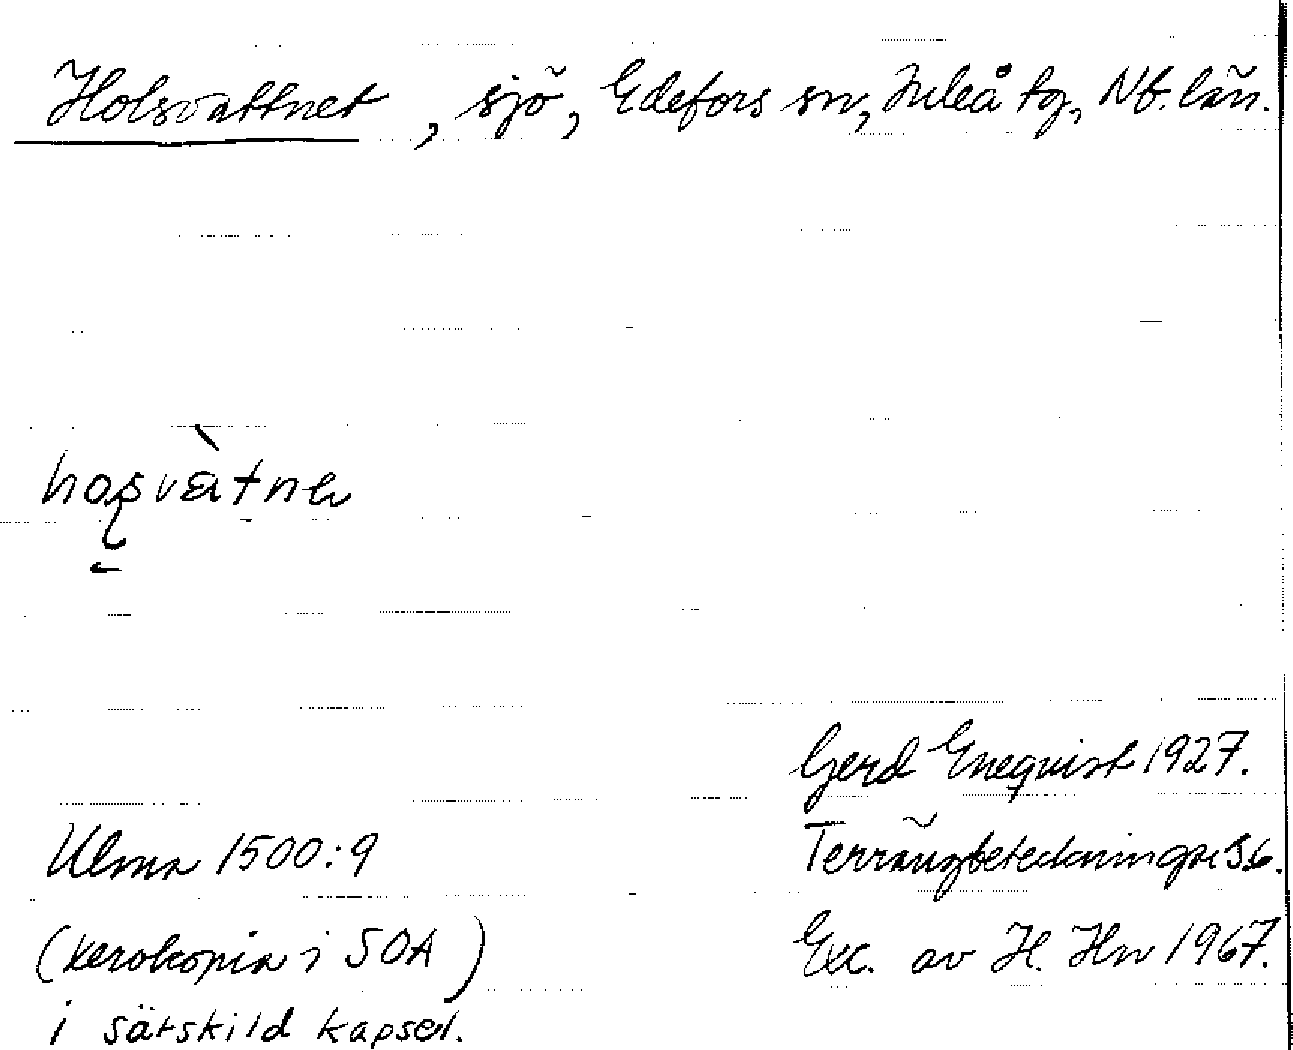 Holsvattnet, sjö, Edefors sn, Luleå tg, Nb. län.
Gerd Enequist 1927.
Ulma 1500:9 Terrängbeteckningar S6.
(xerokopia i SOA) Exc. av H. Hn 1967.
i särskild kapsel.